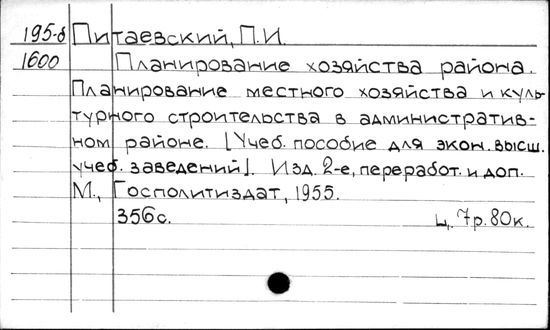 195-б Питаевский, П.И.
1600 Планирование хозяйства района.
Планирование местного хозяйства и куль-
турного строительства в административ-
ном районе. [Учеб. пособие для экон. высш.
учеб. заведений]. Изд. 2-е, переработ. и доп.
М., Госполитиздат, 1955.
356с. ц. 7р. 80к.